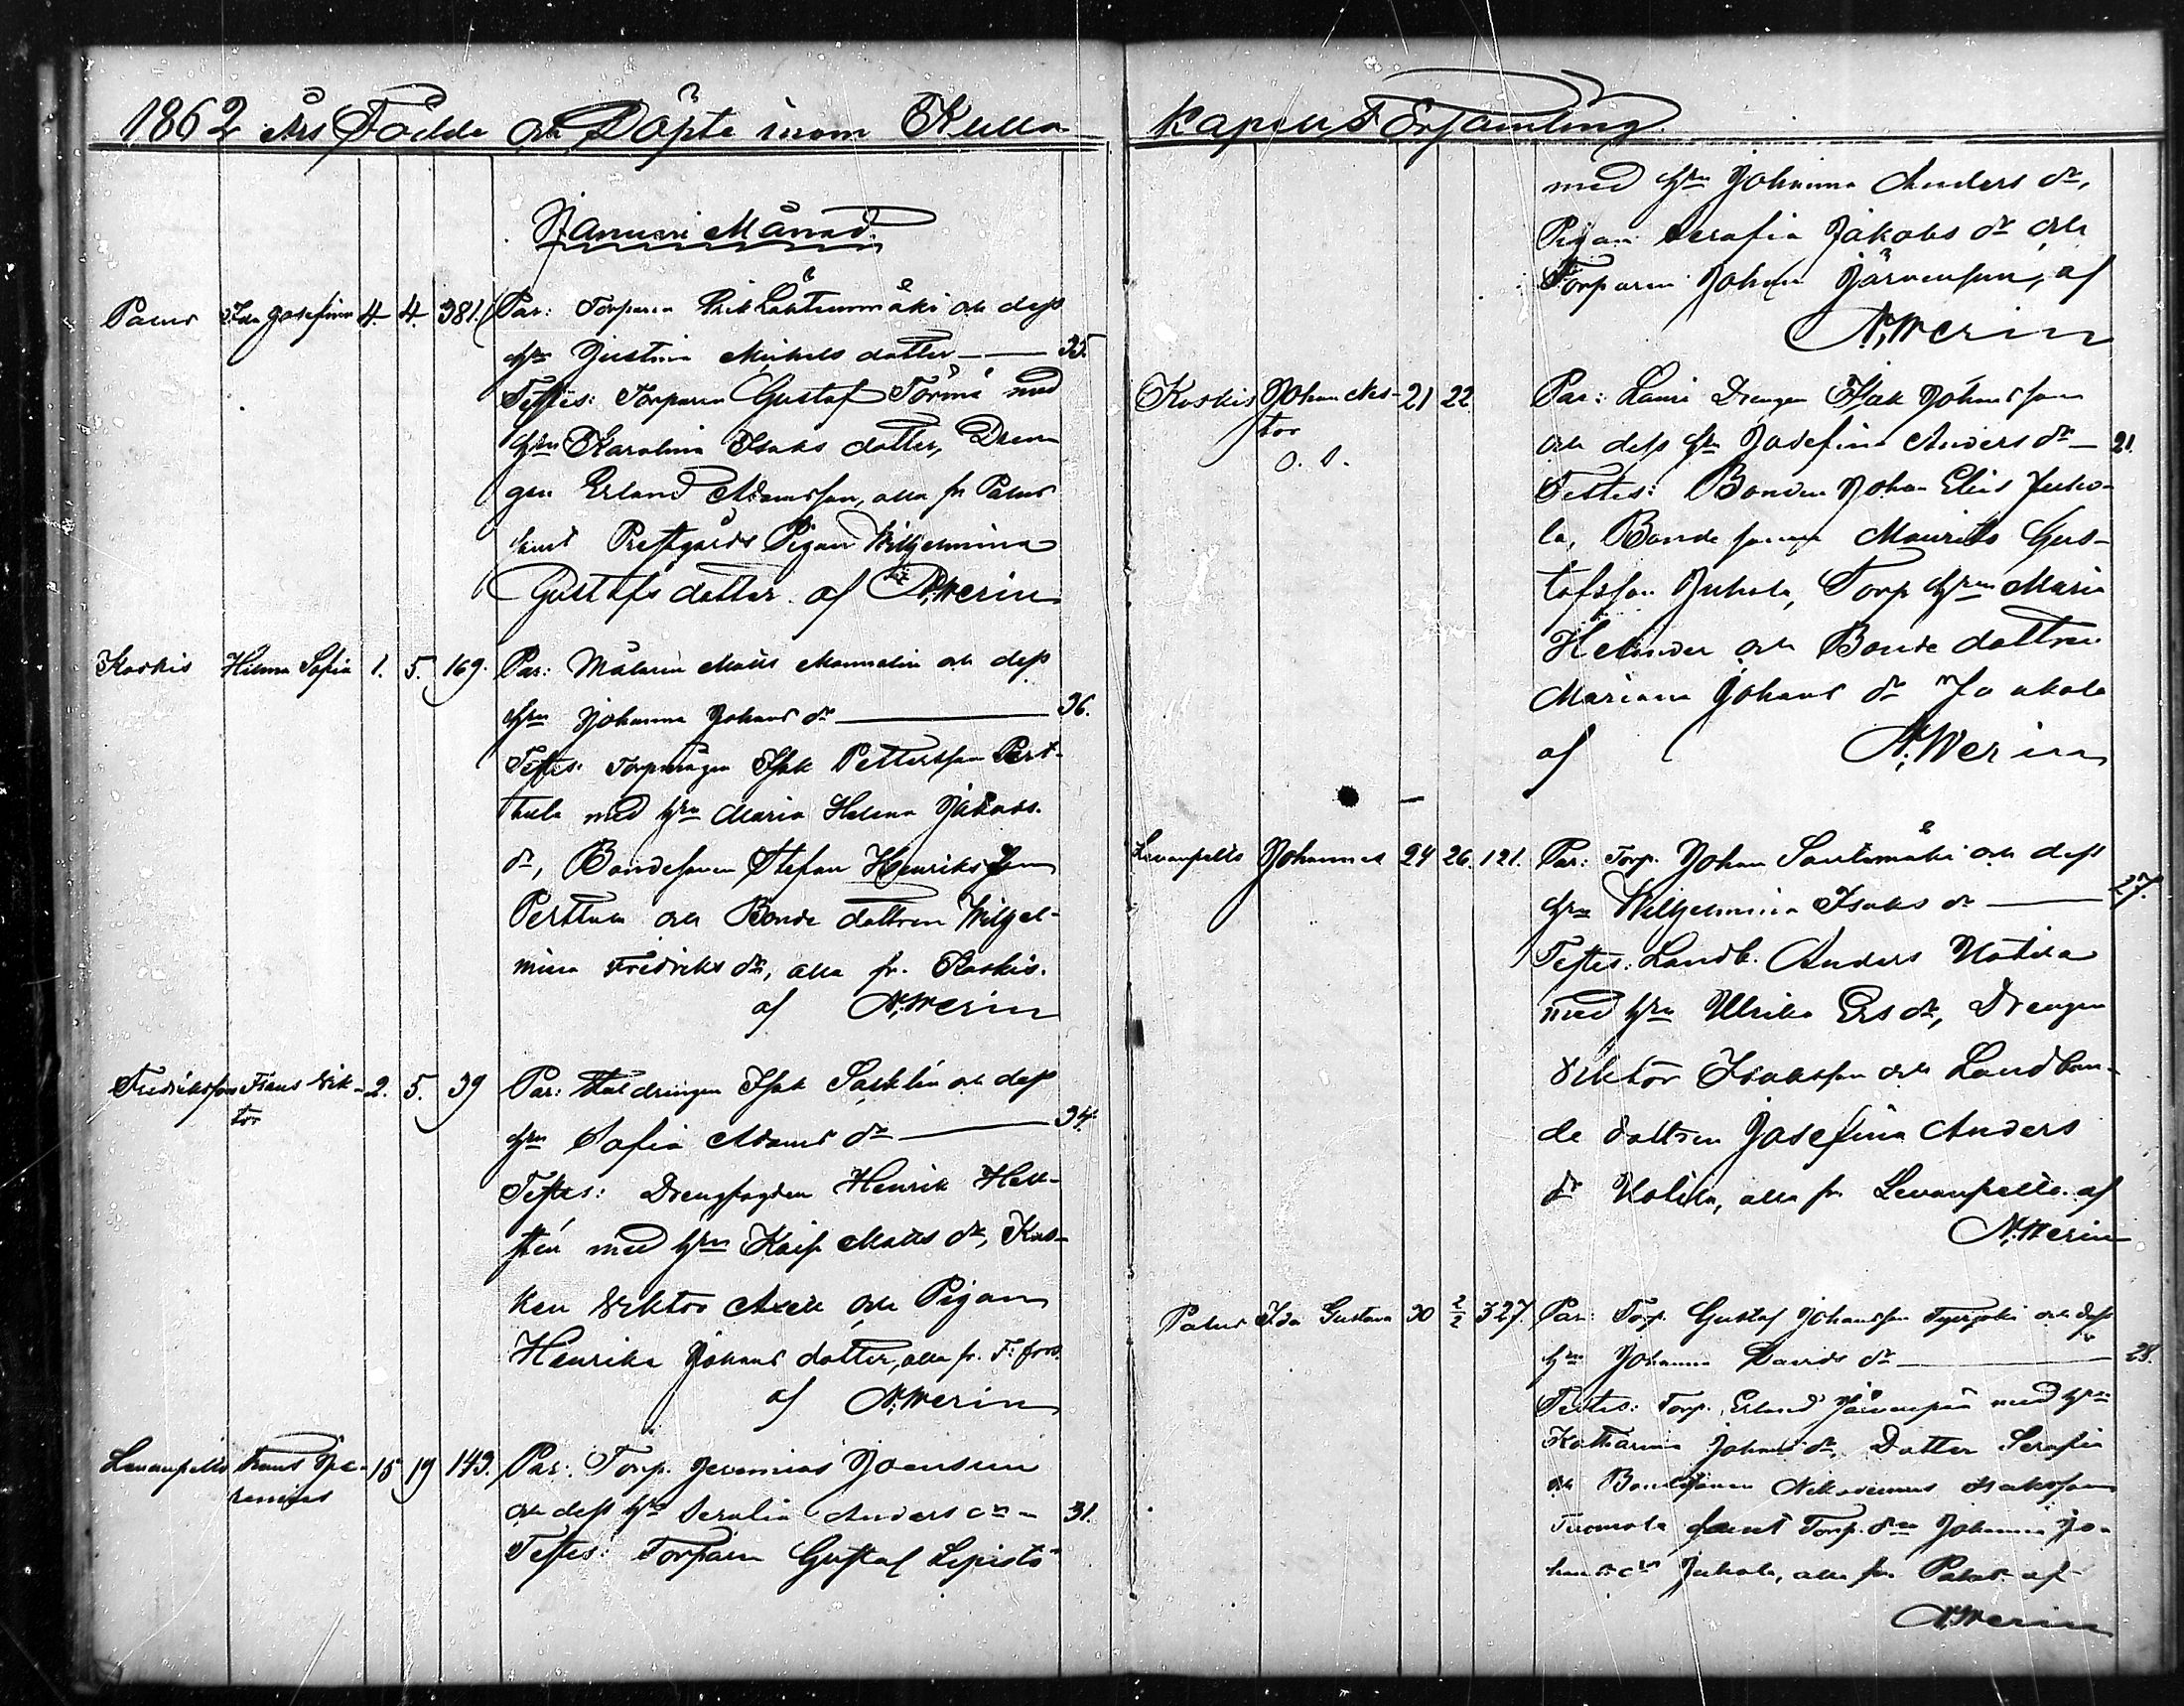 1862 Års Födde och Döpte inom Kulla
Januari Månad.
Palus Ida Josefina 4. 4. 381. Par: Torparen Erik Lähtenmäki och dess
hru Justina Michels dotter — 35.
Testes: Torparen Gustaf Törmä med
hru Karolina Isaks dotter, Dren-
gen Erland Adamsson, alla fr. Palus
samt Prestgårds Pigan Wilhelmina
Gustafs dotter. af N. Werin
Koskis Hilma Sofia 1. 5. 169. Par: Målaren Matts Mannelin och dess
hru Johanna Johans dr — 36.
Testes: Isak Pettersson Pert-
tula med hru Maria Helena Jakobs.
dr, Bondesonen Stefan Henriksson
Perttula och Bonde dottren Wilhel-
mina Fredriks dr, alla fr. Koskis.
af N. Werin
Fredriksfors Frans Vik- 2. 5. 39 Par: Stal drengen Isak och dess
tor
hru Sofia Adams dr — 34.
Testes: Drengfogden Henrik Hell-
stén med hru Kajsa Matts dr, Kus-
ken Viktor Axell och Pigan
Henrika Johans dotter, alla fr. F: fors.
af N. Werin
Levanpelto Frans 15 19 143. Par: Torp. Jeremias Joensuu
och dess hru Serafia Anders dr — 31.
Testes: Torparen Gustaf Lepistö
Kapells Församling.
med hru Johanna Anders dr,
Pigan Serafia Jakobs dr och
Torparen Johan Järvensuu, af
N. Werin
Koskis Johan Nes- 21 22. Par: Drengen Isak Johansson
tor
o. ä.
och dess hru Josefina Anders dr — 21.
Testes: Bonden Johan Elias Juho-
la, Bonde sonen Maurits Gus-
tafsson Juhola, Torp hrun Maria
Helander och Bonde dottren
Mariana Johans dr Jaakola
af N. Werin
Levanpelto Johannes 24 26. 121. Par: Torp. Johan Santamäki och dess
hru Wilhelmina Isaks dr — 27.
Testes: Landb. Anders Uotila
med hru Ulrika Ers dr, Drengen
Viktor Isaksson och Landbon-
de dottren Josefina Anders
dr Uotila, alla fr. Levanpelto. af
N. Werin
Palus Ida Gustava 30 2/2 327. Par: Torp. Gustaf Johansson och dess
hru Johanna Davids dr — 28.
Testes: Torp. Erland Järvenpää med hru
Katharina Johans dr, Dotter Serafia
och Bondesonen Nikodemus Isaksson
Tuomola samt Torp. dr Johanna Jo-
hans dr Juhola, alla fr. Palus. af
N. Werin